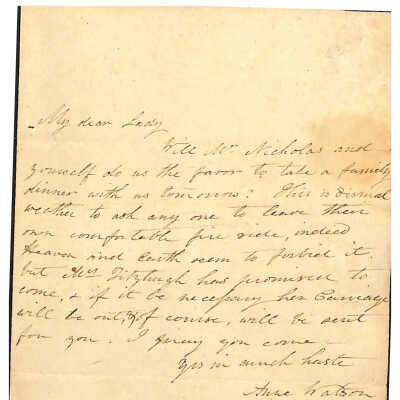 My dear Lady
Will Mr. Nicholas and
yourself do us the favor to take a family
dinner with us tomorrow? This is dismal
weather to ask any one to leave their
own comfortable fire side, indeed
Heaven and Earth seem to forbid it.
but Mrs Fitzhugh has promised to
come, & if it be necessary her Carriage
will be out, & of course, will be sent
for you. I pray you come
Yrs in much haste
Anne Watson